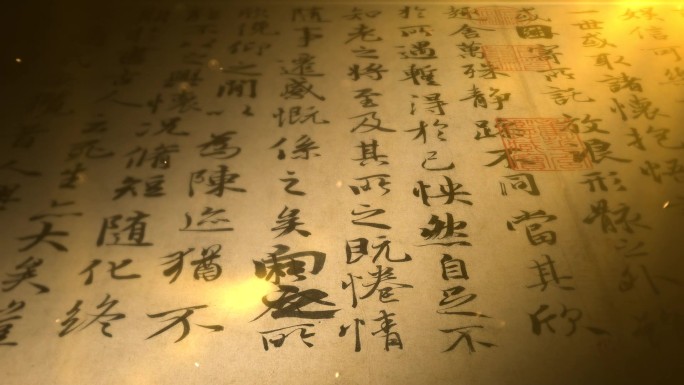 娛信可樂
一世或取諸懷抱悟
或因寄所託放浪形骸之外
趣舍萬殊靜躁不同當其欣
於所遇暫得於己怏然自足不
知老之將至及其所之既惓情
隨事遷感慨係之矣向之所
俛仰之間以為陳迹猶不
之興懷況脩短隨化終
人云死生亦大矣豈
昔人興